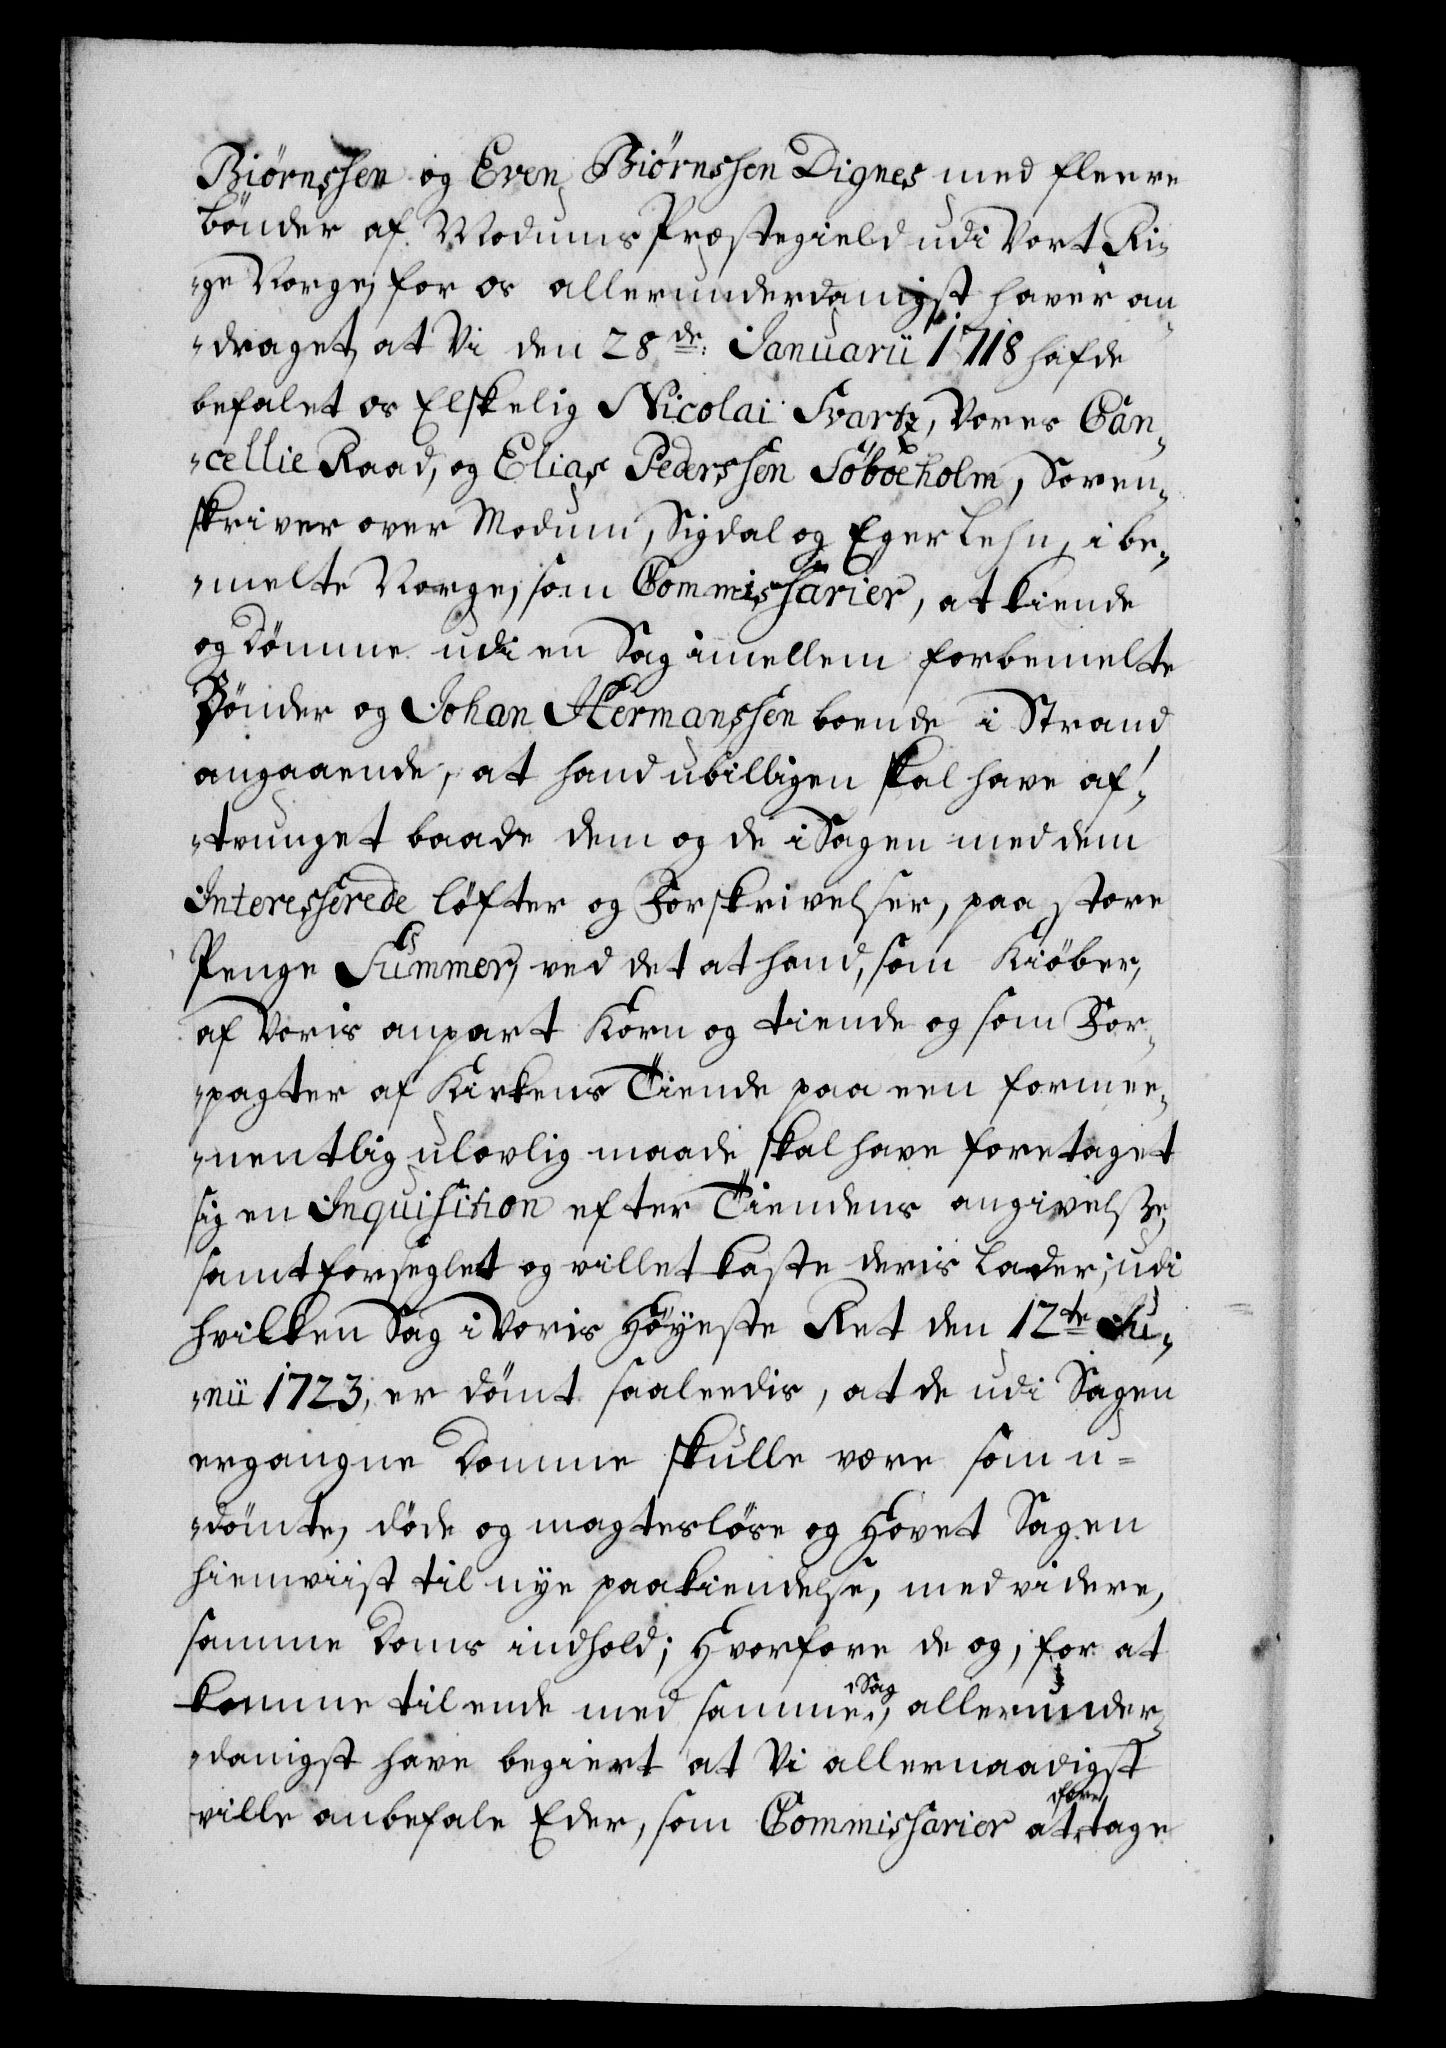 Biørnssen og Even Biørnssen Dignes med fleere
bønder af Modums Præstegield udi Vort Ri-
-ge Norge, for os allerunderdanigst haver an-
-draget, at Vi den 28de: Januarii 1718 hafde
befalet os Elskelig Nicolai Svartz, Vores Can-
-cellie Raad, og Elias Pederssen Söboeholm, Soren-
skriver over Modum, Sigdal og Eger Lehn, i be-
-melte Norge, som Commissarier, at kiende
og dömme udi en Sag imellem forbemelte
Bönder og Johan Hermanssen boende i Strand
angaaende, at hand ubilligen skal have af-
-tvunget baade dem og de i Sagen med dem
Interesserede löfter og Forskrivelser, paa store
Penge Summer, ved det at hand, som Kiöber,
af Voris anpart Korn og tiende og som For-
-pagter af Kirkens Tiende paa een formee-
-nentlig ulovlig maade skal have foretaget
sig en Inquisition efter Tiendens angivelse,
samt forseglet og villet kaste deris Lader; udi
hvilken Sag i Voris Höyeste Ret den 12te Ju-
-nii 1723, er dömt saaleedis, at de udi Sagen
ergangne Domme skulle være som u=
-dömte, döde og magteslöse og Hovet Sagen
hiemviist til nye paakiendelse, med videre,
samme Doms indhold; Hvorfore de og, for at
komme til ende med samme Sag, allerunder-
-danigst have begiert at Vi allernaadigst
ville anbefale Eder, som Commissarier at foretage